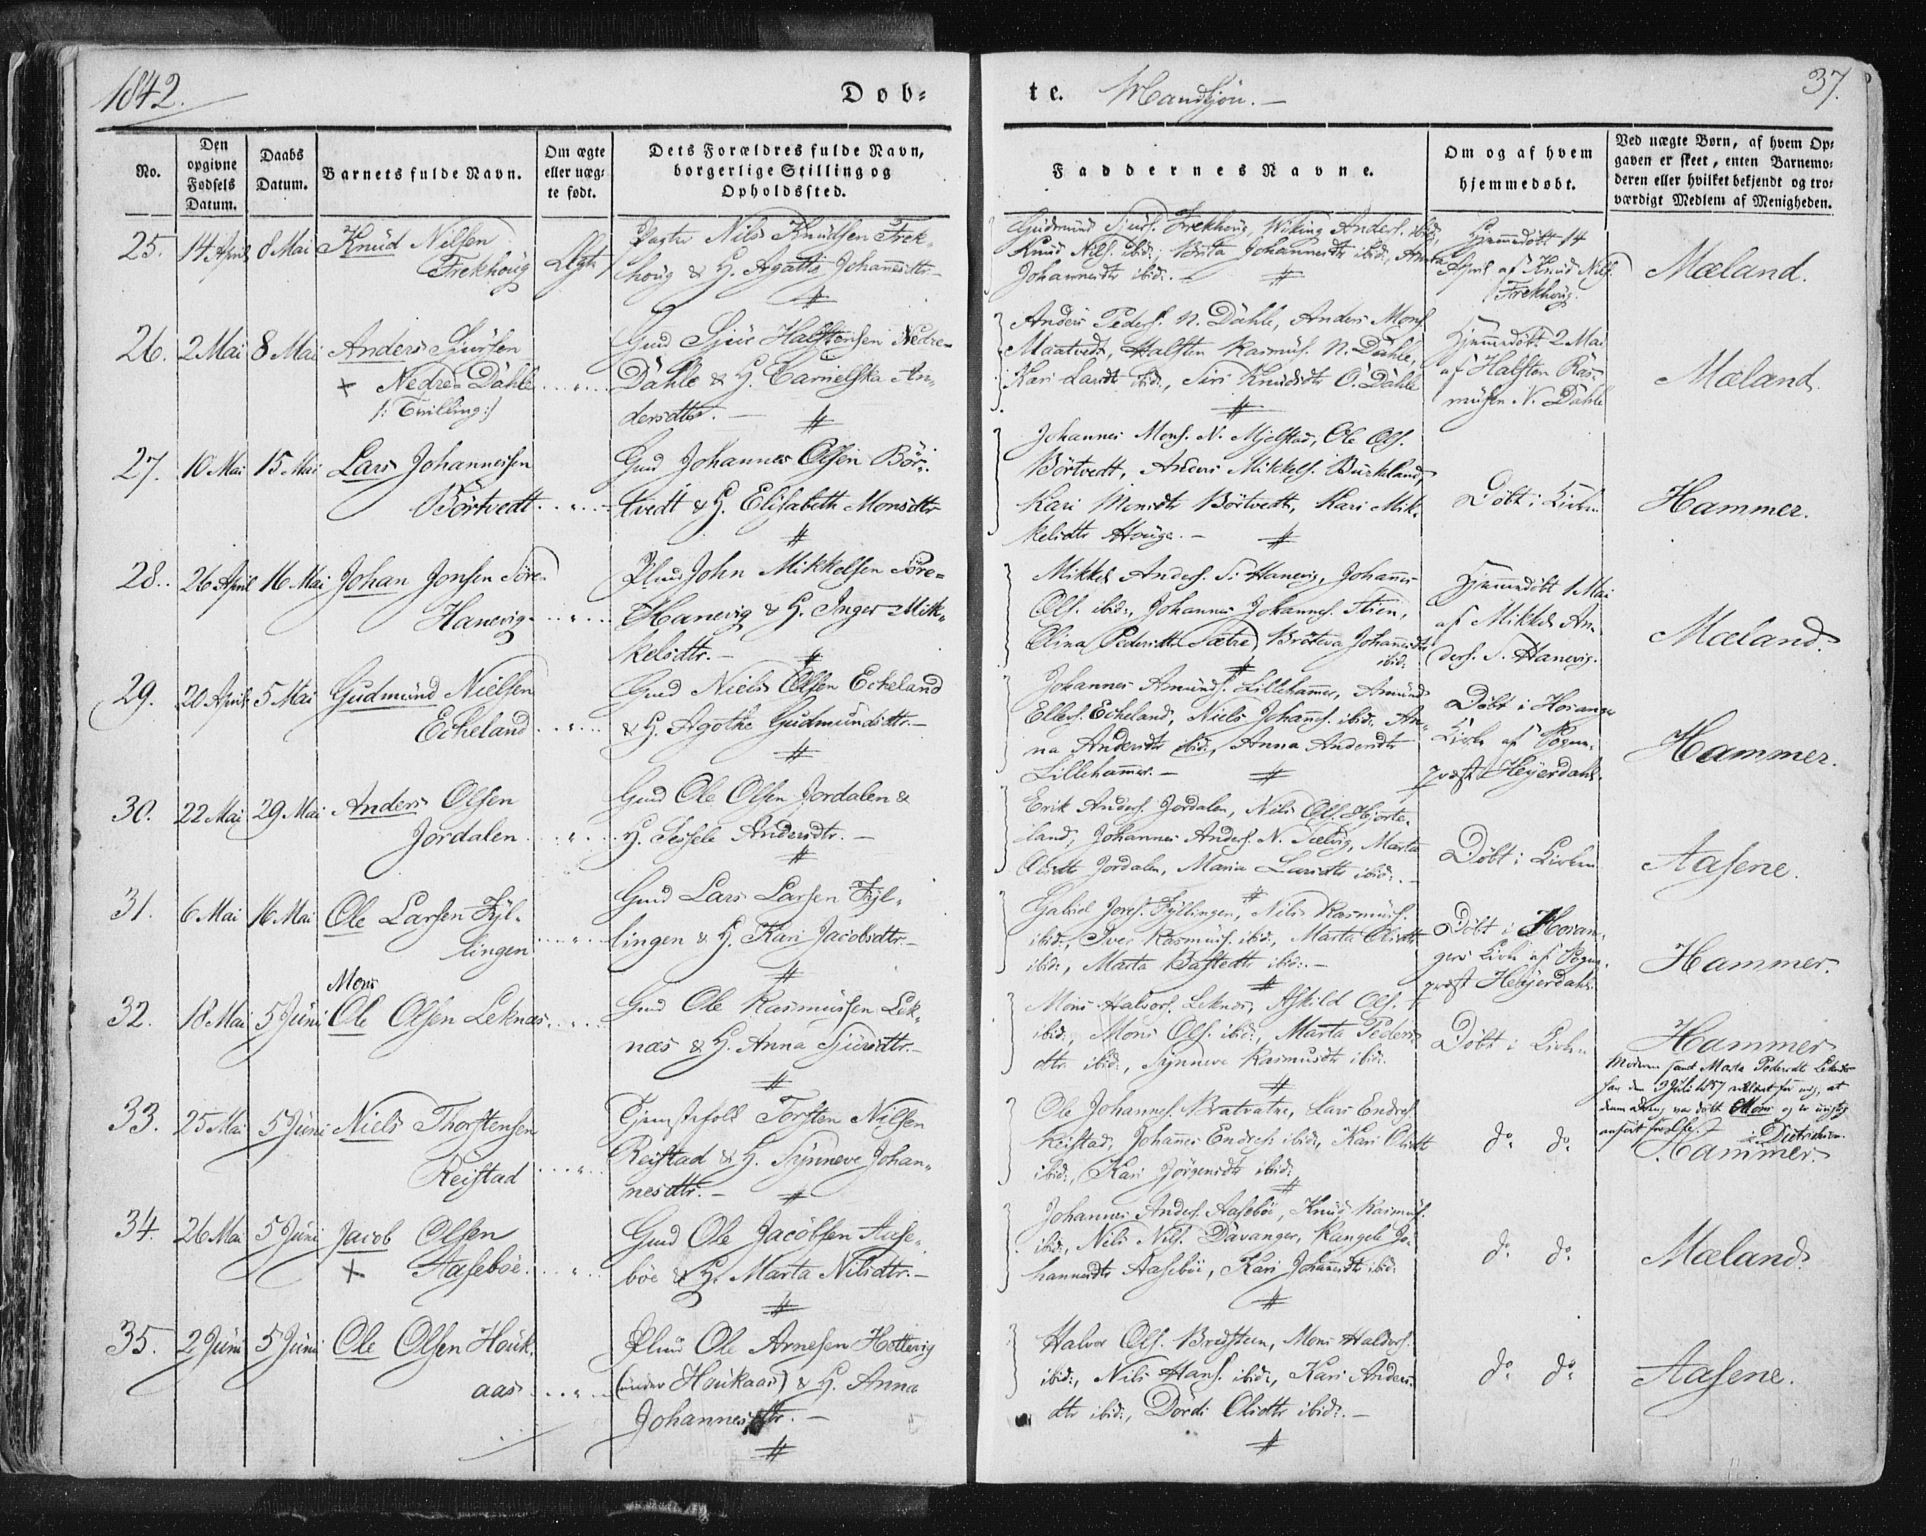 1842.
Døb-
te. Mandkjøn.
37.
No.
Den opgivne Fødsels Datum.
Daabs Datum.
Barnets fulde Navn.
Om ægte eller uæg-te født.
Dets Forældres fulde Navn, borgerlige Stilling og Opholdssted.
Faddernes Navne.
Om og af hvem hjemmedøbt.
Ved uægte Børn, af hvem Op-gaven er skeet, enten Barnemo-deren eller hvilket bekjendt og tro-værdigt Medlem af Menigheden.
25. 14 April 8 Mai Knud Nilsen
Frekhoug Ægte
Nils Knudsen Frek-
houg & H. Agatha Johannsdtr.
Gudmund Siurs. Frekhoug, Wiking Anders. ibid.,
Knud Nils. ibid., Brita Johannesdtr ibid., Anna
Johannesdtr ibid.
Hjemmedøbt 14
April af Knud Nils.
Frekhoug.
Mæland.
26. 2 Mai 8 Mai Anders Sjursen
+ Nedre Dahle
/: Tvilling :/
Gmd Sjur Halstensen Nedre
Dahle & H. Carnelska An-
dersdtr.
Anders Peders. N. Dahle, Anders Mons.
Maatvedt, Halsten Rasmus. N. Dahle,
Kari Larsdt ibid., Siri Knudsdtr Ö. Dahle
Hjemmedøbt 2 Mai
af Halsten Ras-
musen N. Dahle
Mæland.
27. 10 Mai 15 Mai Lars Johannesen
Börtvedt
Gmd Johannes Olsen Bör-
tvedt & H. Elisabeth Monsdtr
Johannes Mons. N. Mjelstad, Ole Ols.
Börtvedt, Anders Mikkels. Burkland,
Kari Monsdtr Börtvedt, Kari Mik-
kelsdtr Houge.
Döbt i Kirken
Hammer.
28. 26 April 16 Mai Johan Jonsen Söre-
Hanevig
Plmd John Mikkelsen Söre-
Hanevig & H. Inger Mik-
kelsdtr.
Mikkel Anders. S. Hanevig, Johannes
Ols. ibid., Johannes Johannes. Stien,
Olina Pedersdtr Sætre, Bröteva Johannesdtr
ibid.
Hjemmedöbt 1 Mai
af Mikkel An-
ders. S. Hanevig.
Mæland.
29. 20 April 5 Mai Gudmund Nielsen
Eckeland
Gmd Niels Olsen Eckeland
& H. Agothe Gudmundsdtr.
Johannes Amunds. Lillehammer, Amund
Ellers. Eckeland, Niels Johannes. ibid. An-
na Andersdtr ibid., Anna Andersdtr
Lillehammer.
Döbt i Hosanger
Kirke af Sogne-
præst Heyerdahl.
Hammer.
30. 22 Mai 29 Mai Anders Olsen
Jordalen
Gmd Ole Olsen Jordalen &
H. Sessele Andersdtr.
Erik Anders. Jordalen, Nils Ols. Hjorte-
land, Johannes Anders. N. Sælvig, Marta
Olsdtr Jordalen, Maria Larsdtr ibid.
Döbt i Kirken
Aasene.
31. 6 Mai 16 Mai Ole Larsen Fyl-
lingen
Gmd Lars Larsen Fyl-
lingen & H. Kari Jacobsdtr.
Gabriel Joes. Fyllingen, Nils Rasmus.
ibid., Iver Rasmus. ibid., Marta Olsdtr
ibid., Marta Bastedtr ibid.
Döbt i Hosan-
ger Kirke af Sogne-
præst Heyerdahl.
Hammer.
Mons
32. 18 Mai 5 Juni Ole Olsen Leknes
Gmd Ole Rasmussen Lek-
næs & H. Anna Sjursdtr.
Mons Haldors. Leknes, Askild Ols.
ibid., Mons Ols. ibid., Marta Peders-
dtr ibid., Synneve Rasmusdtr ibid.
Döbt i Kirken
Hammer
Moderen samt Marta Pedersdt Leknes
har den 9 Juli 1857 erklæret for mig, at
denne Dreng var døbt Mons og er urigtig
anført
Dietrichson.
33. 25 Mai 5 Juni Niels Thorstensen
Reistad
Tjenestefolk Torsten Nilsen
Reistad & H. Synneve Johan-
nesdtr.
Ole Johannes. Bratvatne, Lars Endres.
Reistad, Johannes Endres. ibid., Kari Olsdtr
ibid., Kari Jörgensdtr ibid.
do do
Hammer.
34. 26 Mai 5 Juni Jacob Olsen
+ Aaseböe
Gmd Ole Jacobsen Aase-
böe & H. Marta Nilsdtr.
Johannes Anders. Aaseböe, Knud Rasmus.
ibid., Nils Nils. Davanger, Rangele Jo-
hannesdtr Aaseböe, Kari Johannsdtr ibid.
do do
Mæland.
35. 2 Juni 5 Juni Ole Olsen Houk-
aas
Plmd Ole Arnesen Hottevig
(under Houkaas) & H. Anna
Johannesdtr.
Halvor Ols. Bredsteen, Mons Haldors.
ibid., Nils Hans. ibid., Kari Anders-
dtr ibid., Dordi Olsdtr ibid.
do do
Aasene.